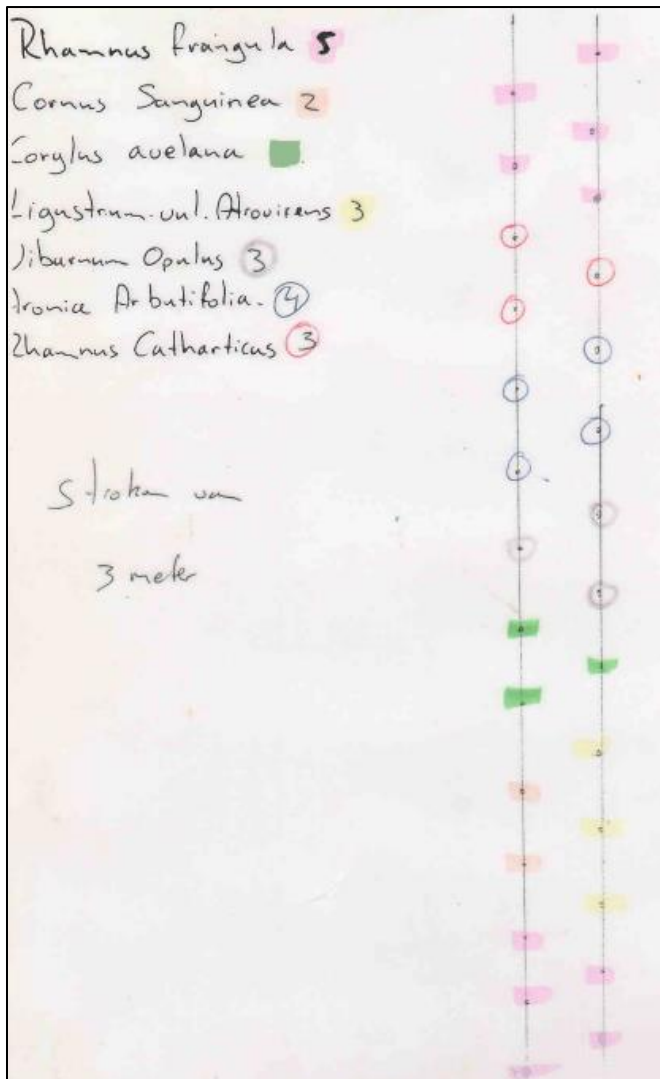 Rhamnus frangula 5
Cornus Sanguinea 2
Corylus avelana
Ligustrum vul. Atrovirens 3
Viburnum Opulus 3
Aronia Arbutifolia. 4
Rhamnus Catharticus 3
Stroken van
3 meter